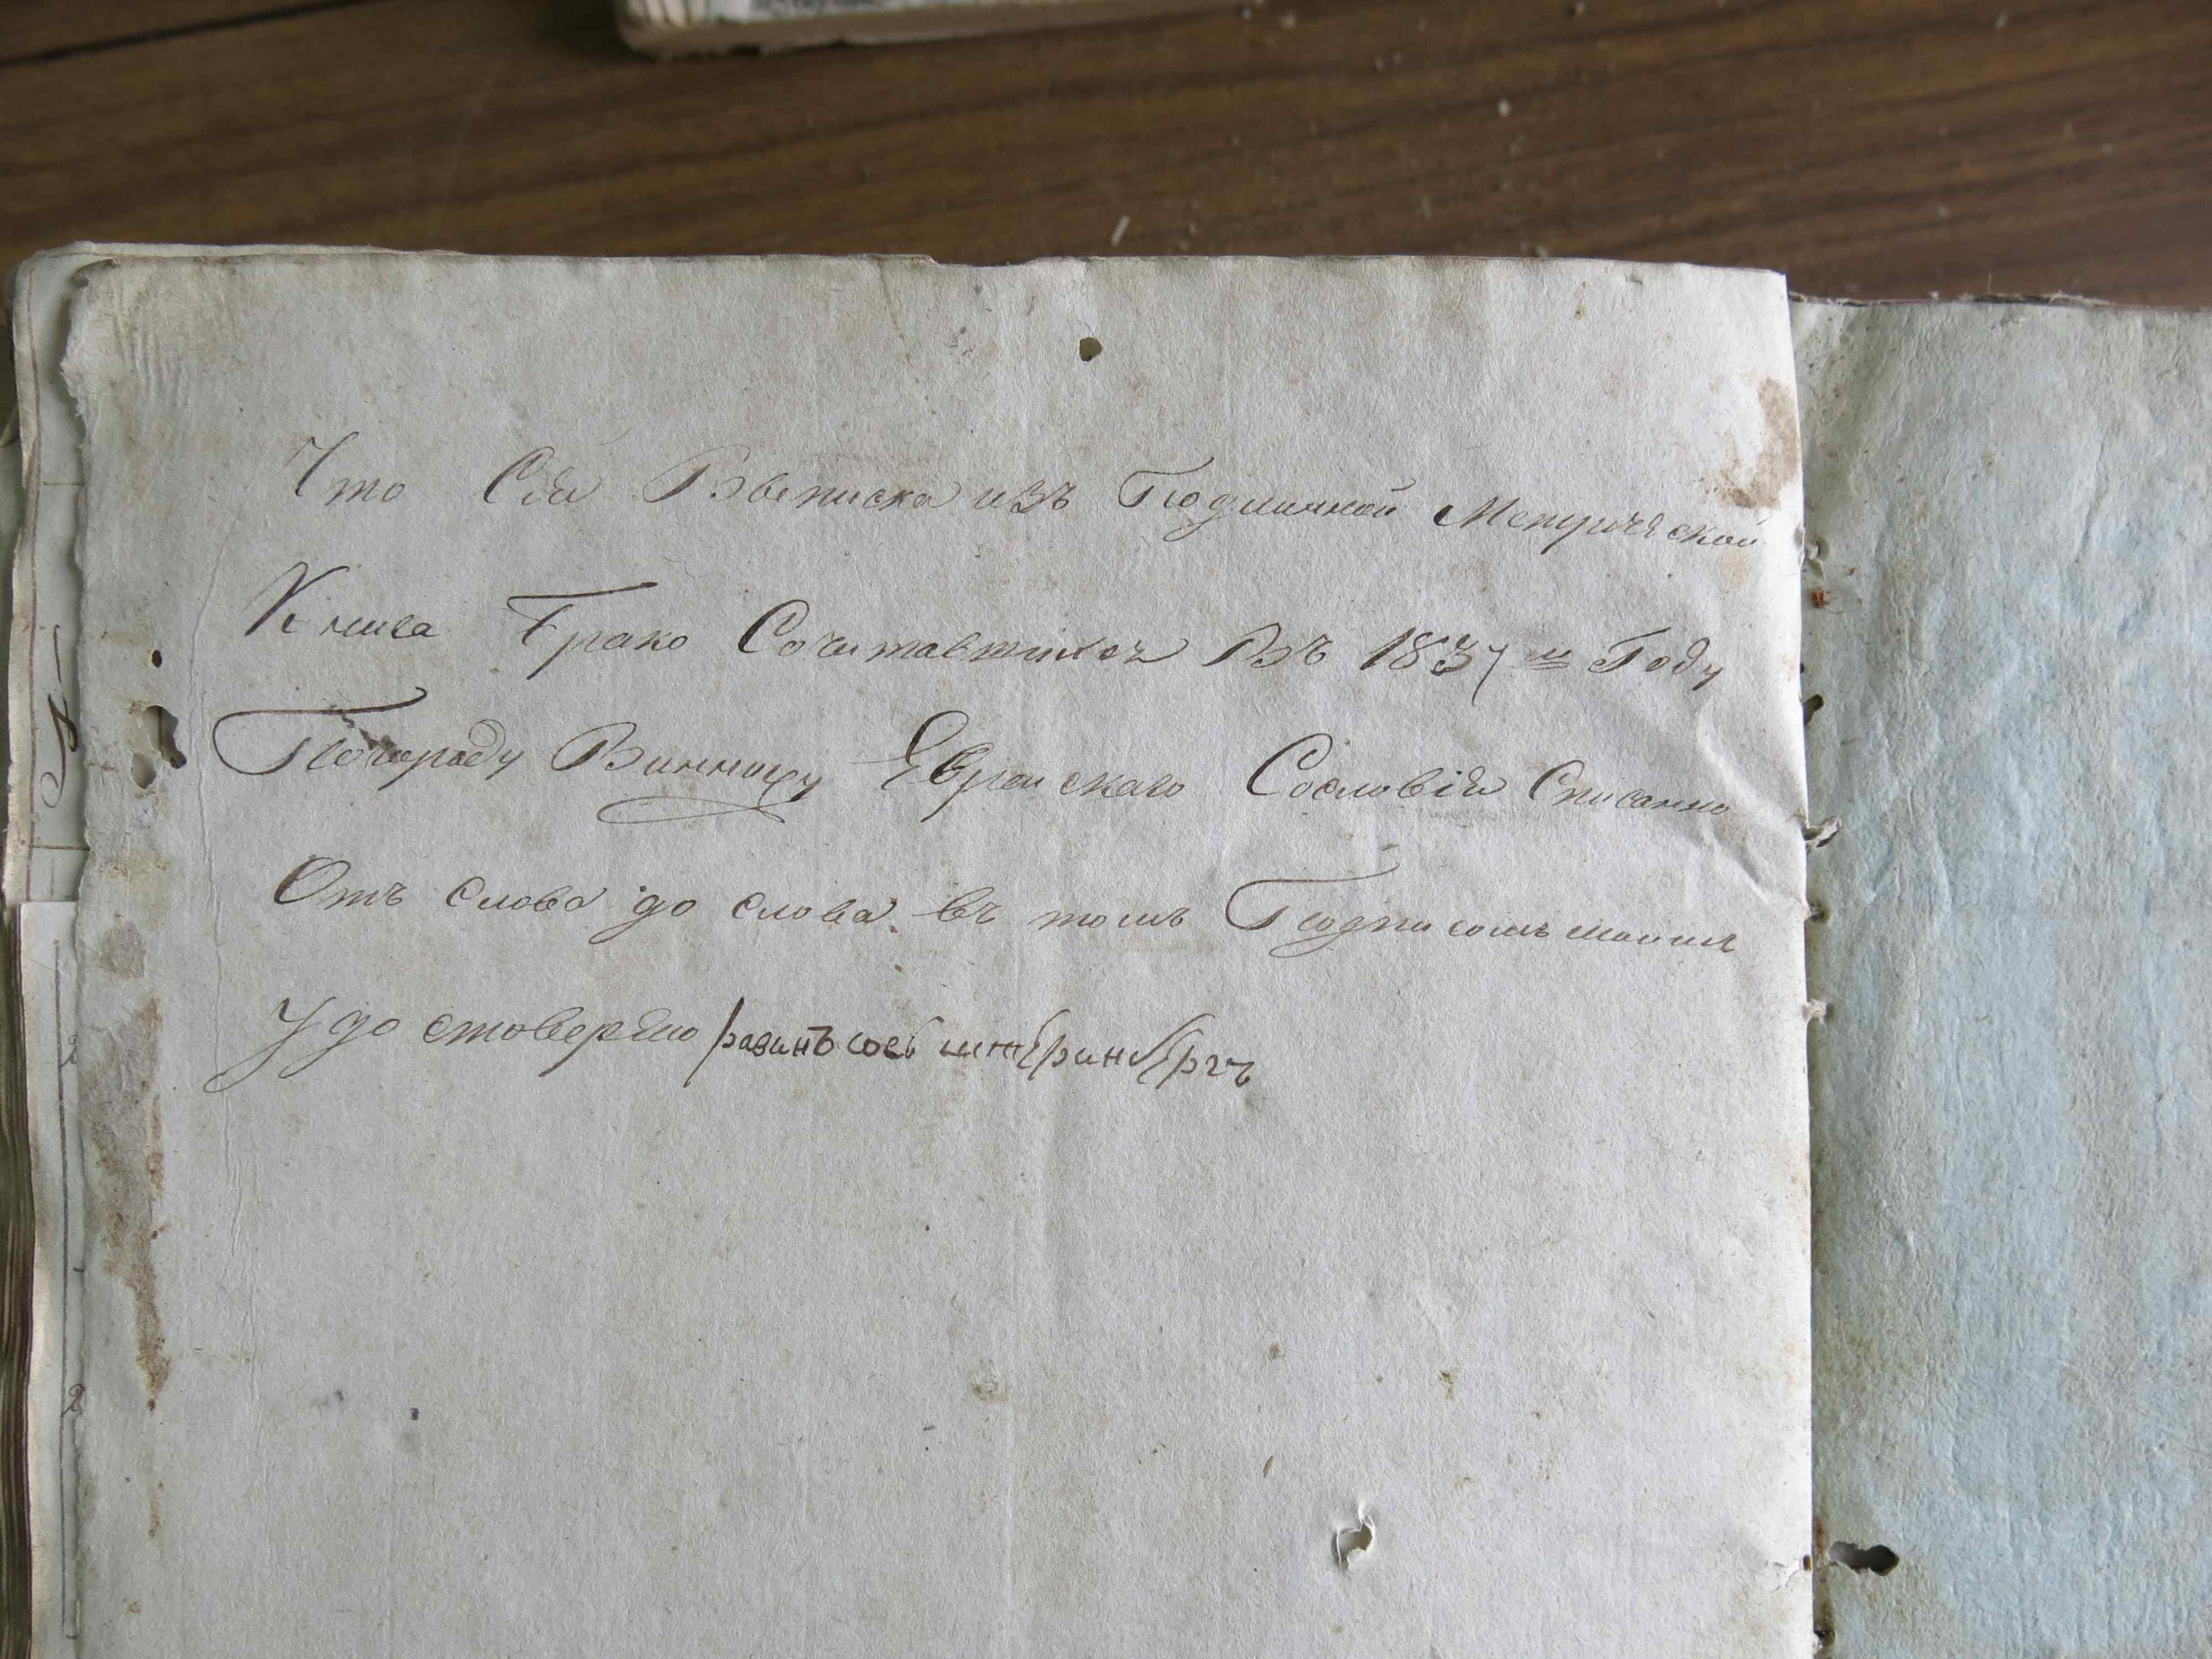 Что Сія Ввеписка изъ Подлинной Метрической
Книга Брако Сочитавшихсъ Въ 1837 м Году
Погораду Винницу Евреискаго Сословія Списанно
Отъ слова до слова въ томъ Подписомъ моимъ
Удостоверяю равинъ